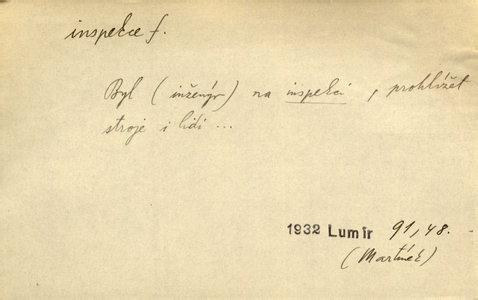 inspekce f.
Byl (inženýr) na inspekci, prohlížet
stroje i lidi ...
1932 Lumír 91, 48.
(Martínek)